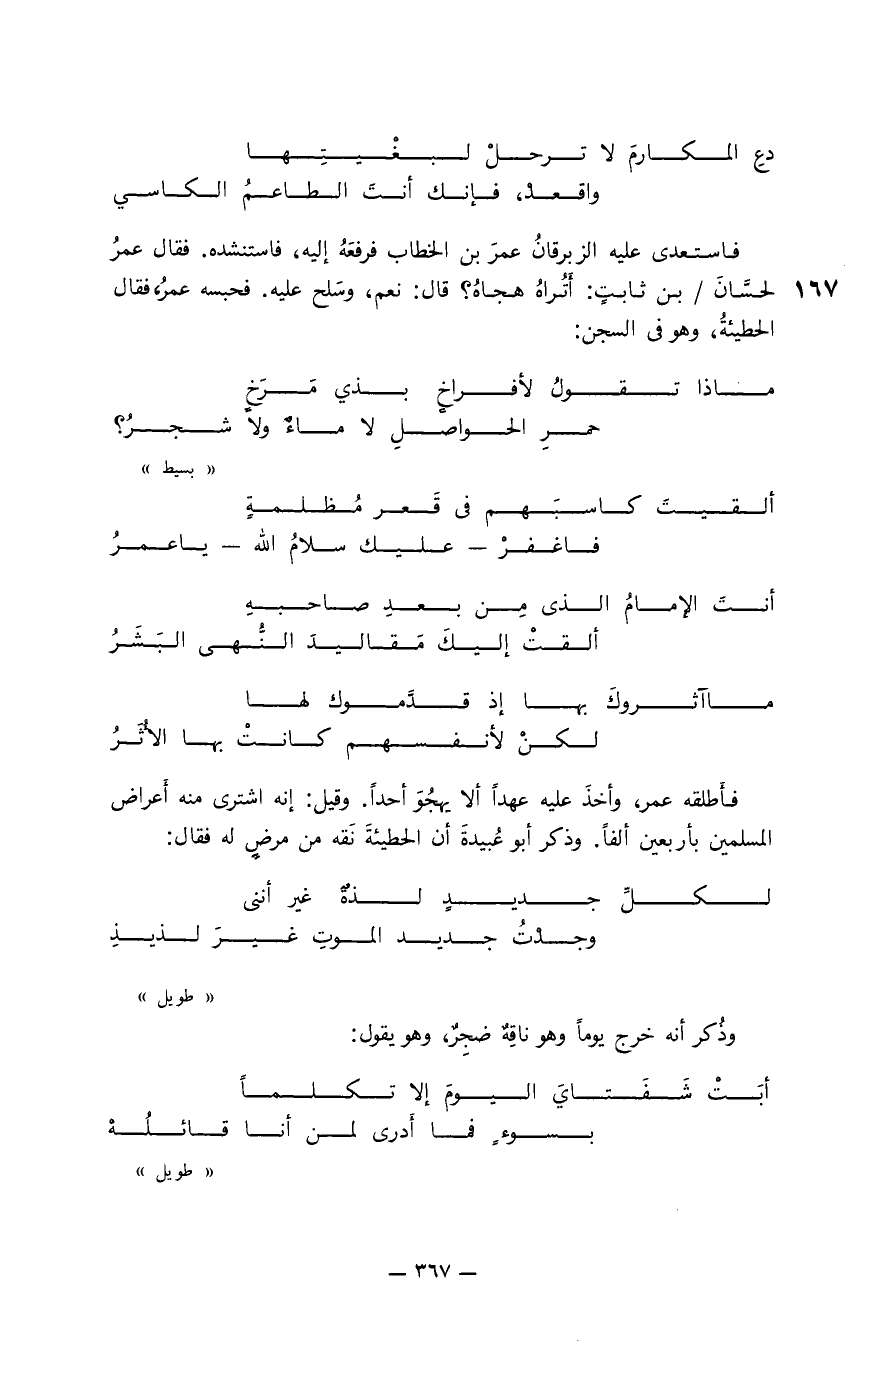 دع المكارمَ لا ترحلْ لبغْيتِها
واقعدْ، فإنك أنتَ الطاعمُ الكاسي
فاستعدى عليه الزبرقانُ عمرَ بن الخطاب فرفعَهُ إليه، فاستنشده. فقال عمرُ
١٦٧ لحسَّانَ / بن ثابتٍ: أَتُراهُ هجاهُ؟ قال: نعم، وسَلح عليه. فحبسه عمرُ، فقال
الحطيئةُ، وهو فى السجن:
ماذا تقولُ لأفراخٍ بذي مَرَخٍ
حمرِ الحواصلِ لا ماءٌ ولا شجرُ؟
« بسيط »
ألقيتَ كاسبَهم فى قَعر مُظلمةٍ
فاغفرْ – عليك سلامُ الله – ياعمرُ
أنتَ الإمامُ الذى مِن بعدِ صاحبهِ
ألقتْ إليكَ مَقاليدَ النُّهى البَشَرُ
ماآثروكَ بها إذ قدَّموك لها
لكنْ لأنفسهم كانتْ بها الأثَرُ
فأطلقه عمر، وأخذَ عليه عهداً ألا يهجُوَ أحداً. وقيل: إنه اشترى منه أَعراض
المسلمين بأربعين ألفاً. وذكر أبو عُبيدةَ أن الحطيئةَ نَقه من مرضٍ له فقال:
لكلِّ جديدٍ لذةٌ غير أننى
وجدْتُ جديد الموتِ غيرَ لذيذِ
« طويل »
وذُكر أنه خرج يوماً وهو ناقِهٌ ضجِرٌ، وهو يقول:
أبَتْ شَفَتايَ اليومَ إلا تكلماً
بسوءٍ فما أدرى لمن أنا قائلُهْ
« طويل »
– ٣٦٧ –